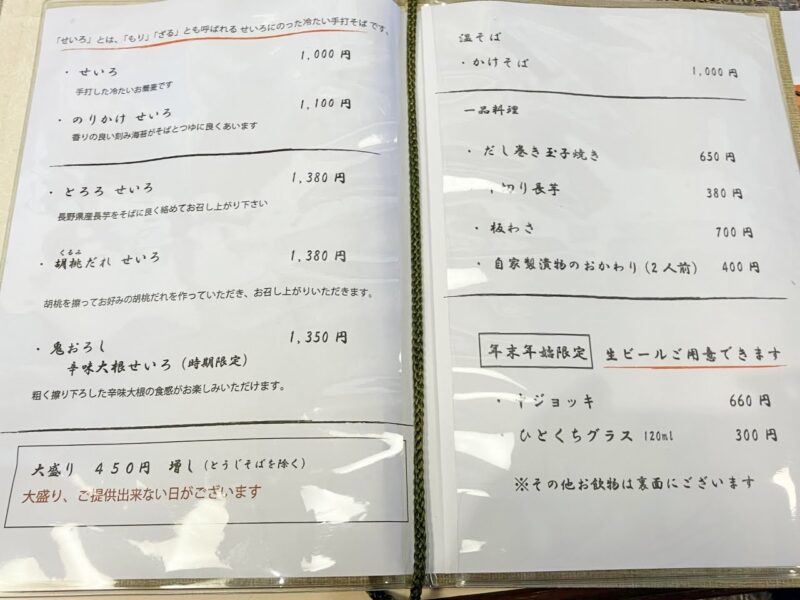 「せいろ」とは、「もり」「ざる」とも呼ばれる せいろにのった冷たい手打そば です、
・せいろ 1,000 円
手打した冷たいお蕎麦です
・のりかけ せいろ 1,100 円
香りの良い刻み海苔がそばとつゆに良くあいます
・とろろ せいろ 1,380 円
長野県産長芋をそばに良く絡めてお召し上がり下さい
くるみ
・胡桃だれ せいろ 1,380 円
胡桃を擦ってお好みの胡桃だれを作っていただき、お召し上がりいただきます。
・鬼おろし 1,350 円
辛味大根せいろ（時期限定）
粗く擦り下ろした辛味大根の食感がお楽しみいただけます。
大盛り 450円 増し（とうじそばを除く）
大盛り、ご提供出来ない日がございます
温そば
・かけそば 1,000 円
一品料理
・だし巻き玉子焼き 650 円
切り長芋 380 円
・板わさ 700 円
・自家製漬物のおかわり（2人前） 400 円
年末年始限定 生ビールご用意できます
・ジョッキ 660 円
・ひとくちグラス 120ml 300 円
※その他お飲物は裏面にございます